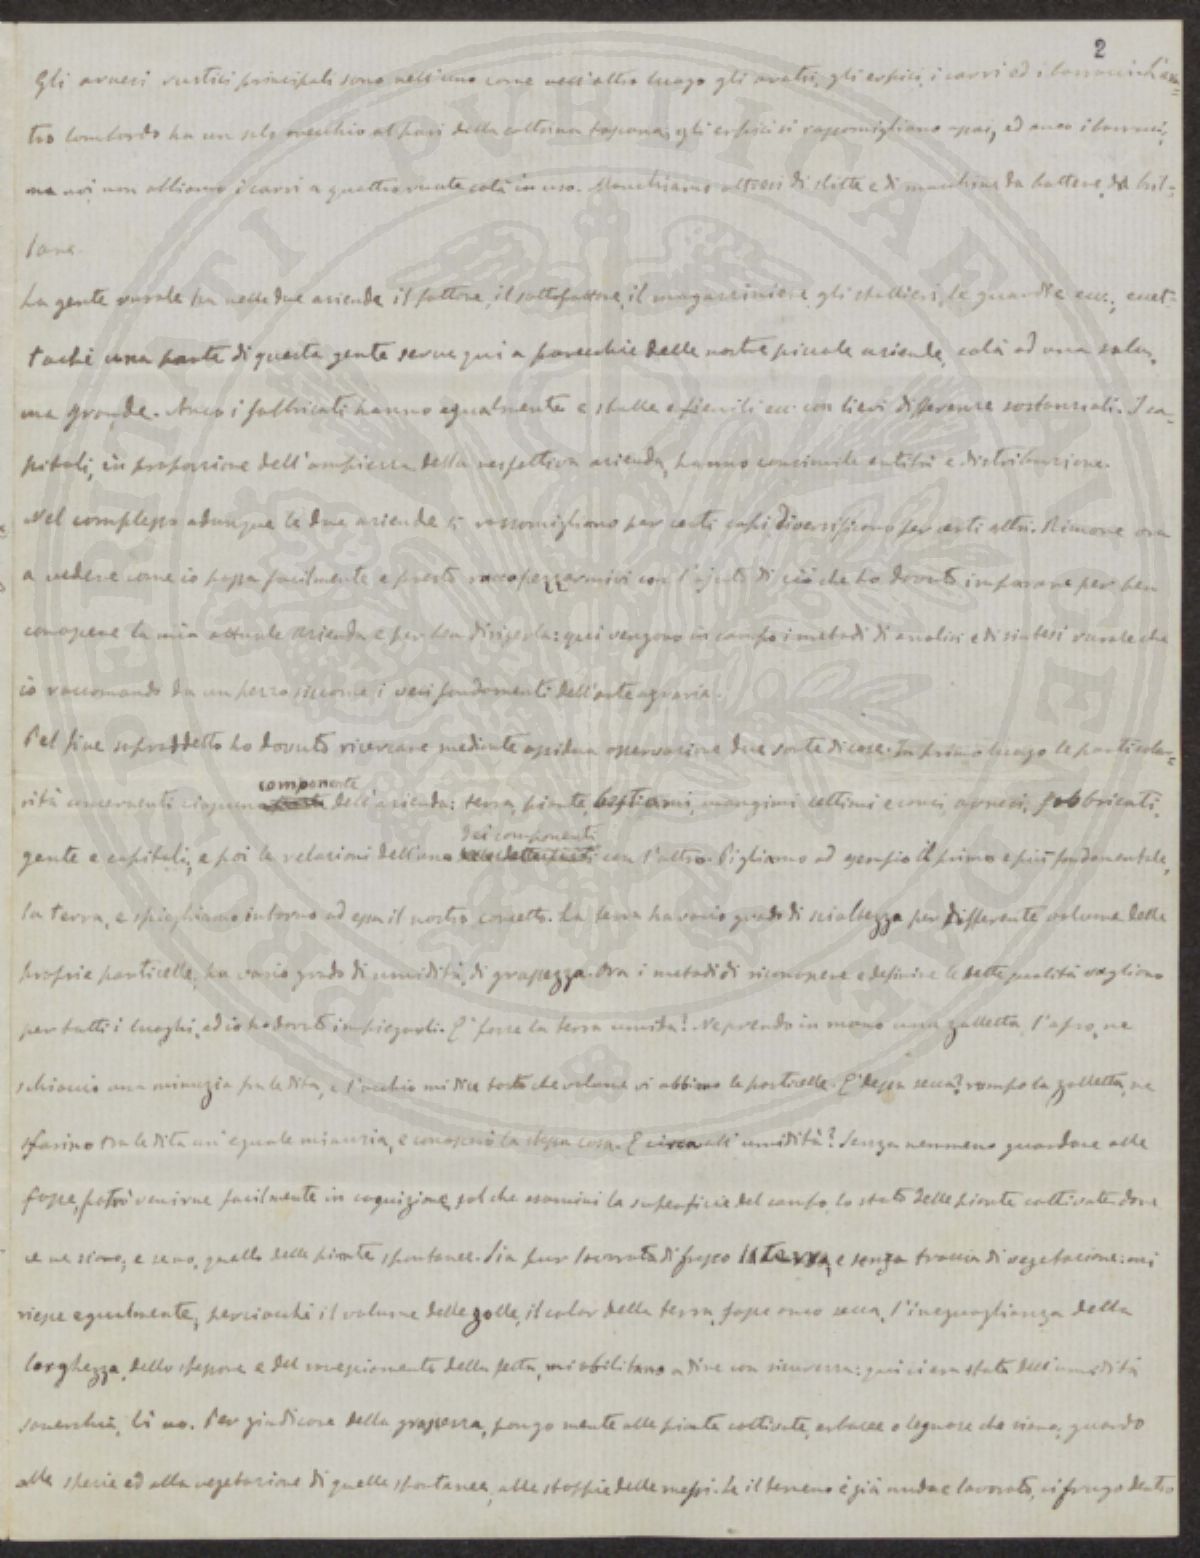 2
Gli arnesi rustici principali sono nell'uno come nell'altro luogo gli aratri, gli erpici, i carri ed i barrocci. L'ara=
tro lombardo ha un solo orecchio al pari della coltrina toscana; gli erpici si rassomigliano assai, ed anco i barrocci,
ma noi non abbiamo i carri a quattro ruote colà in uso. Manchiamo altresì di slitte e di macchine da battere, da bril=
lare.
La gente rurale ha nelle due aziende il fattore, il sottofattore, il magazziniere, gli stallieri, le guardie ecc.,
tochè una parte di questa gente serve qui a parecchie delle nostre piccole aziende, colà ad una sola,
ma grande. Anco i fabbricati hanno egualmente e stalle e fienili ecc. con lievi differenze sostanziali. I ca=
pitali, in proporzione dell'ampiezza della respettiva azienda, hanno consimile entità e distribuzione.
Nel complesso adunque le due aziende si rassomigliano per certi capi, diversificano per certi altri. Rimane ora
a vedere come io possa facilmente e presto raccapezzarmivi con l'ajuto di ciò che ho dovuto imparare per ben
conoscere la mia attuale azienda e per ben dirigerla: qui vengono in campo i metodi di analisi e di sintesi rurale che
io raccomando da un pezzo siccome i veri fondamenti dell'arte agraria.
Pel fine sopraddetto ho dovuto ricercare mediante assidua osservazione due sorte di cose. In primo luogo le particola=
componente
rità concernenti ciascuna parte dell'azienda: terra, piante, bestiami, mangimi lettimi e conci, arnesi, fabbricati,
dei componenti
gente e capitali, e poi le relazioni dell'uno con l'altro. Pigliamo ad esempio il primo e più fondamentale,
la terra, e spieghiamo intorno ad essa il nostro concetto. La terra ha vario grado di scioltezza per differente volume delle
proprie particelle, ha vario grado di umidità, di grassezza. Ora i metodi di riconoscere e definire le dette qualità vagliono
per tutti i luoghi, ed io ho dovuto impiegarli. E' forse la terra umida? Ne prendo in mano una zolletta, l'apro, ne
schiaccio una minuzia fra le dita, e l'occhio mi dice tosto che volume vi abbiano le particelle. E' dessa secca? rompo la zolletta, ne
sfarino tra le dita un'eguale minuzia, e conoscerò la stessa cosa. E circa all'umidità? Senza nemmeno guardare alle
fosse, potrò venirne facilmente in cognizione, sol che esamini la superficie del campo, lo stato delle piante coltivate dove
ve ne siano, e se no, quello delle piante spontanee. Sia pur lavorata di fresco la terra, e senza traccia di vegetazione: mi
riesce egualmente, perciocchè il volume delle zolle, il color della terra, fosse anco secca, l'ineguaglianza della
larghezza, dello spessore e del rovesciamento della fetta, mi abilitano a dire con sicurezza: qui ci era stata dell'umidità
soverchia, lì no. Per giudicare della grassezza, pongo mente alle piante coltivate, erbacee o legnose che siano, guardo
alla specie ed alla vegetazione di quelle spontanee, alle stoppie delle messi. Se il terreno è già nudo e lavorato, vi frugo dentro